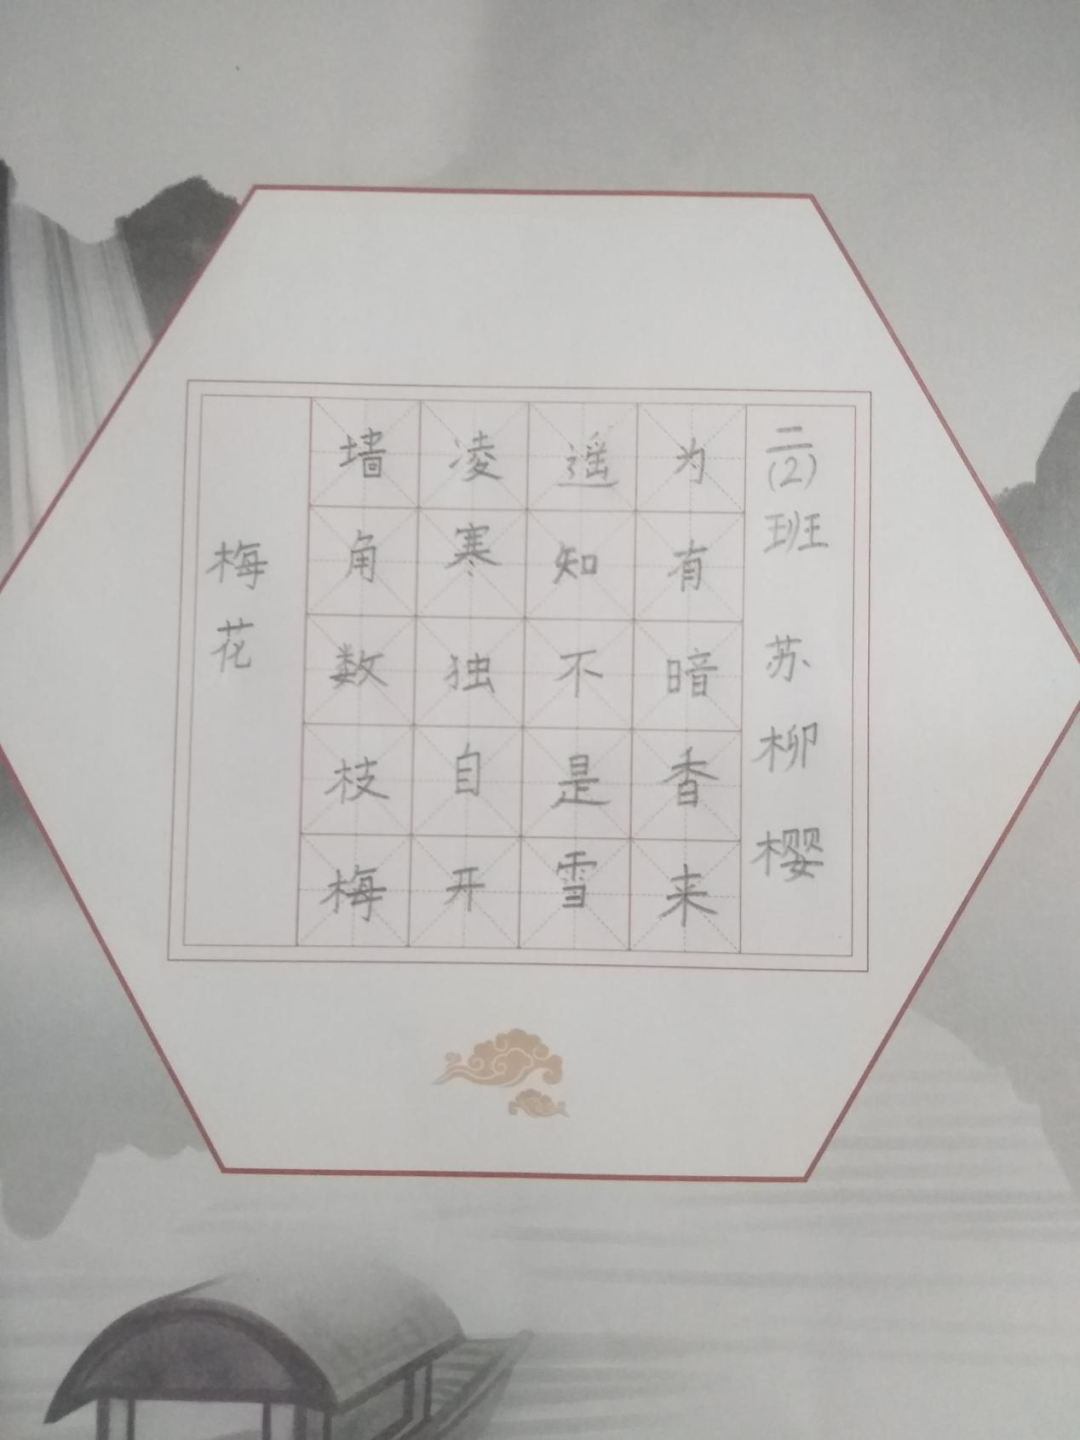 梅花
墙角数枝梅
凌寒独自开
遥知不是雪
为有暗香来
二(2)班 苏柳樱